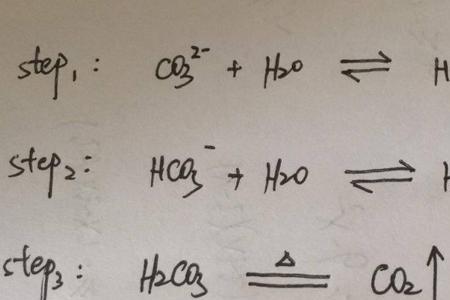 step₁: CO₃²⁻ + H₂O ⇌ H
step₂: HCO₃⁻ + H₂O ⇌ H
step₃: H₂CO₃ ≜ CO₂↑